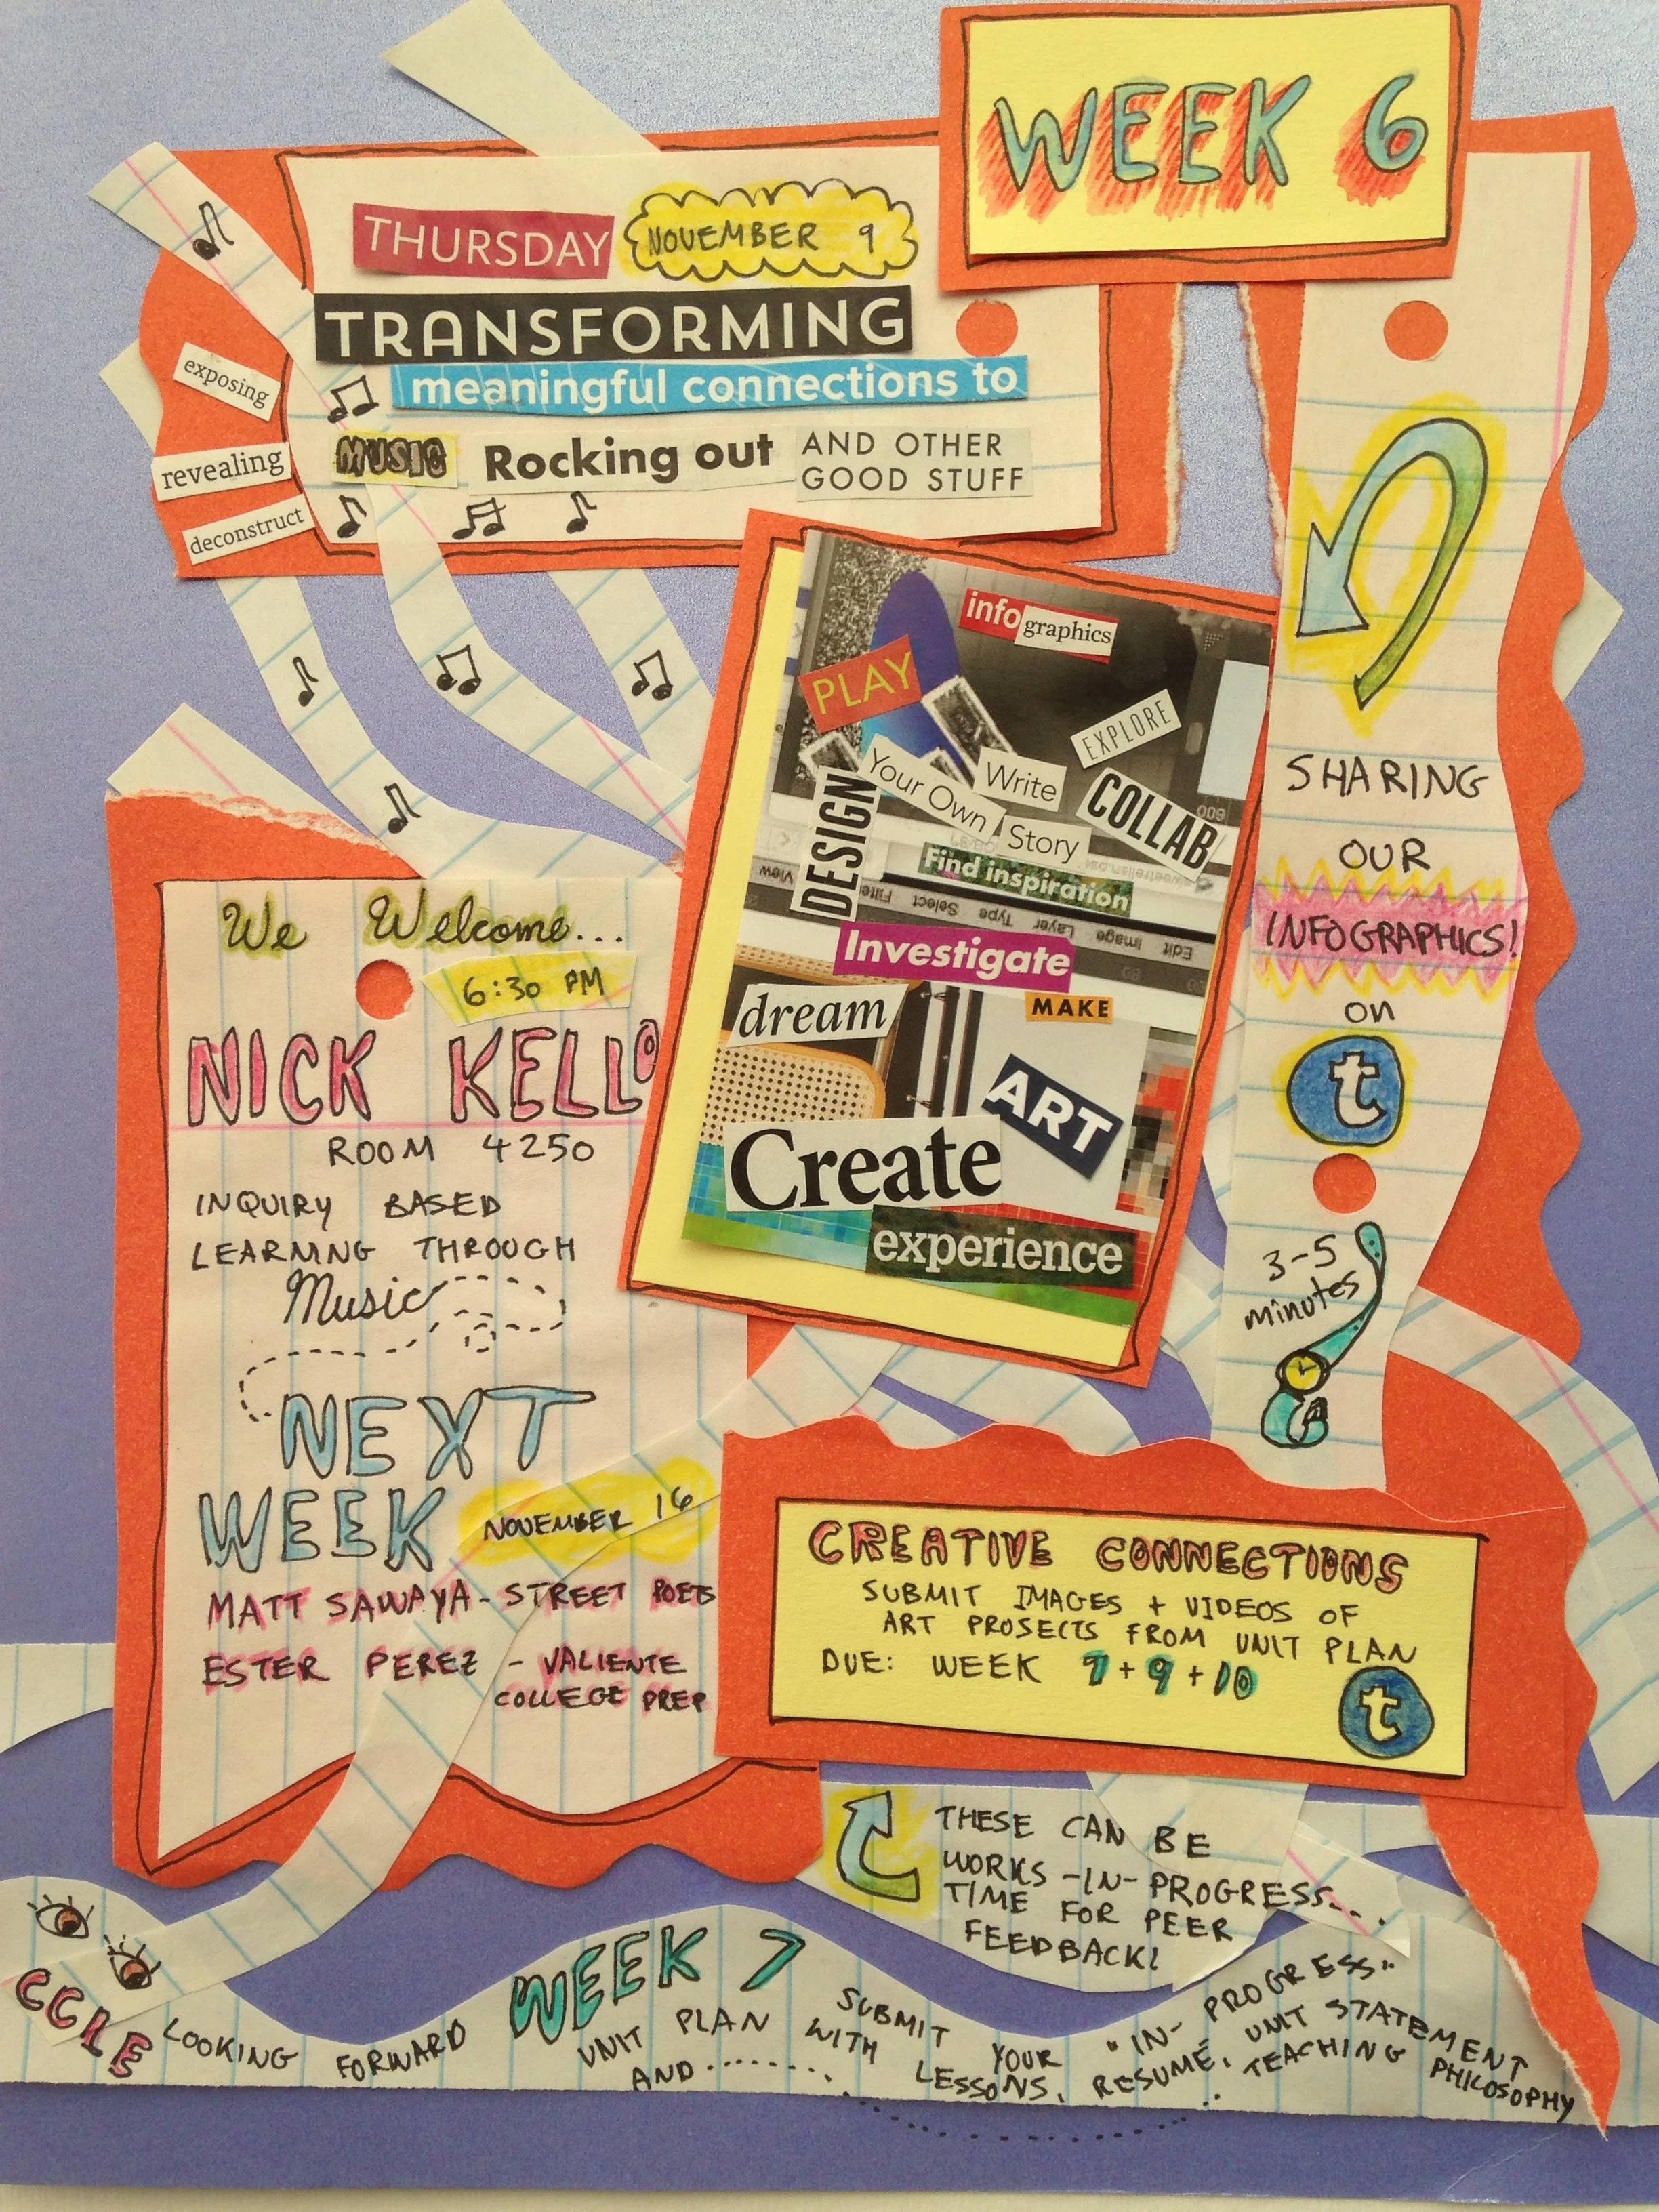 WEEK 6
THURSDAY NOVEMBER 9
TRANSFORMING
meaningful connections to
MUSIC Rocking out AND OTHER
GOOD STUFF
exposing
revealing
deconstruct
infographics
PLAY
EXPLORE
Your Own
Write
Story
COLLAB
DESIGN
Find inspiration
View
Filter
Select
Type
Layer
Image
Edit
Investigate
dream
MAKE
ART
Create
experience
SHARING
OUR
INFOGRAPHICS!
on
t
3-5
minutes
We Welcome...
6:30 PM
NICK KELLO
ROOM 4250
INQUIRY BASED
LEARNING THROUGH
Music
NEXT
WEEK NOVEMBER 16
MATT SAWAYA - STREET POETS
ESTER PEREZ - VALIENTE
COLLEGE PREP
CREATIVE CONNECTIONS
SUBMIT IMAGES + VIDEOS OF
ART PROJECTS FROM UNIT PLAN
DUE: WEEK 7 + 9 + 10
t
THESE CAN BE
WORKS-IN-PROGRESS...
TIME FOR PEER
FEEDBACK!
CCLE
LOOKING FORWARD WEEK 7
SUBMIT YOUR "IN-PROGRESS"
UNIT PLAN WITH LESSONS, RESUME, UNIT STATEMENT
AND........ TEACHING PHILOSOPHY